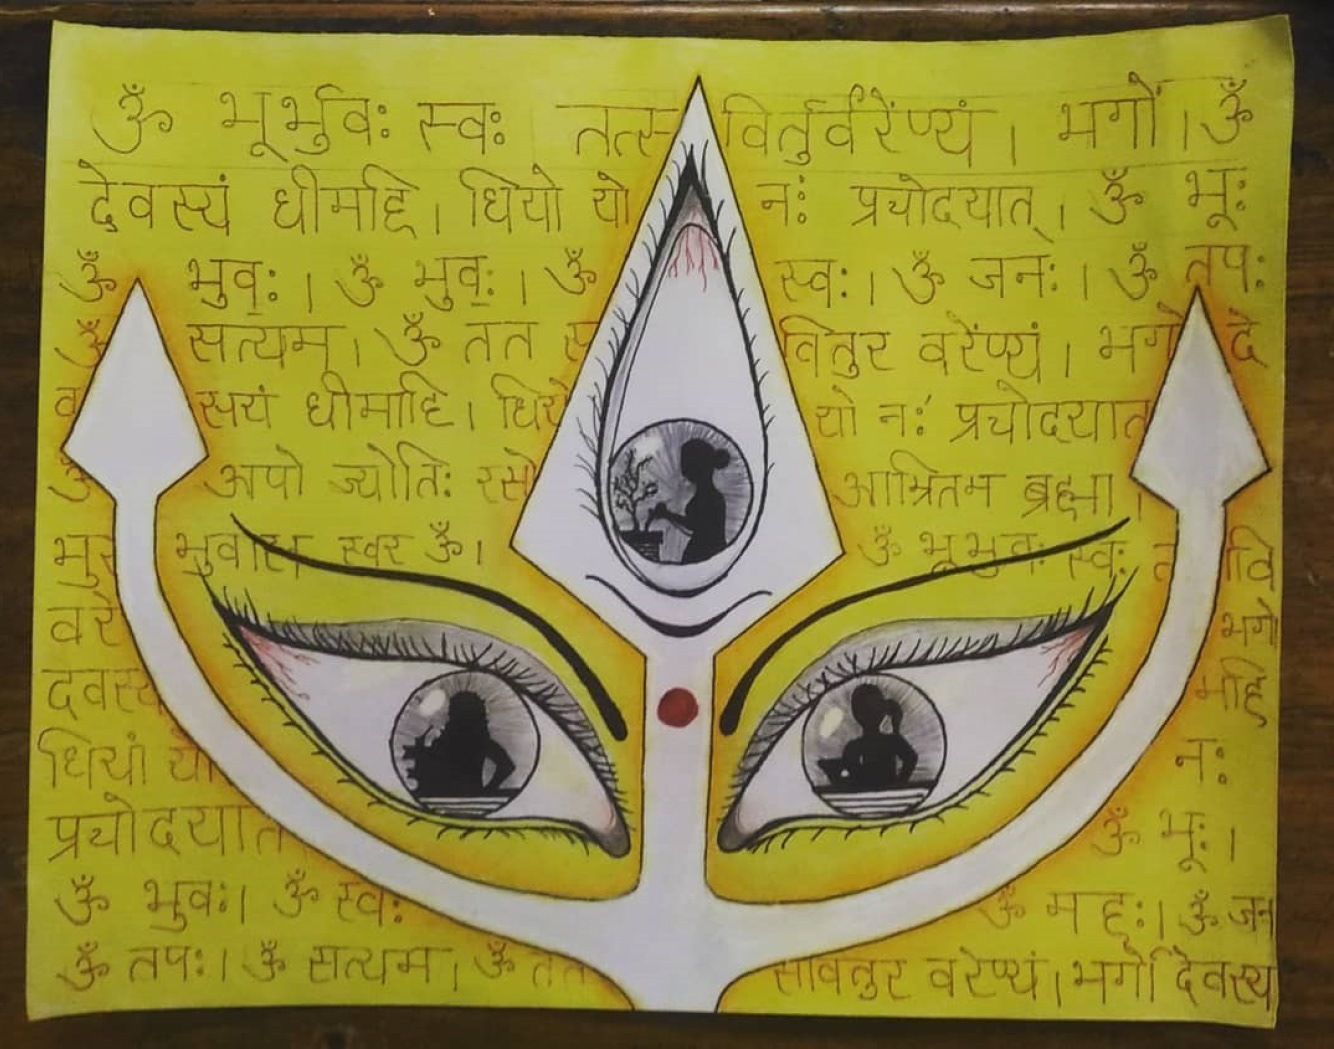 ॐ भूर्भुवः स्वः तत्स वितुर्वरेंण्यं । भर्गो । ॐ
देवस्यं धीमहि । धियो यो नंः प्रचोदयात् । ॐ भूः
ॐ भुवः । ॐ भुवः । ॐ स्वः । ॐ जनः । ॐ तपः
ॐ सत्यम् । ॐ तत स वितुर वरेंण्यं । भर्गो दे
व सयं धीमाहि । धियो यो नः प्रचोदयात
ॐ अपो ज्योतिः रसो आम्रितम ब्रह्मा ।
भुर स्वर ॐ । ॐ भूभुवः स्वः त वि
वरे भर्गो
दवस्य महि
धियां यो नः
प्रचोदयात ॐ भूः ।
ॐ भुवः । ॐ स्वः ॐ महः । ॐ जन
ॐ तपः । ॐ सत्यम । ॐ तत सवितुर वरेण्यं । भर्गो देवस्य